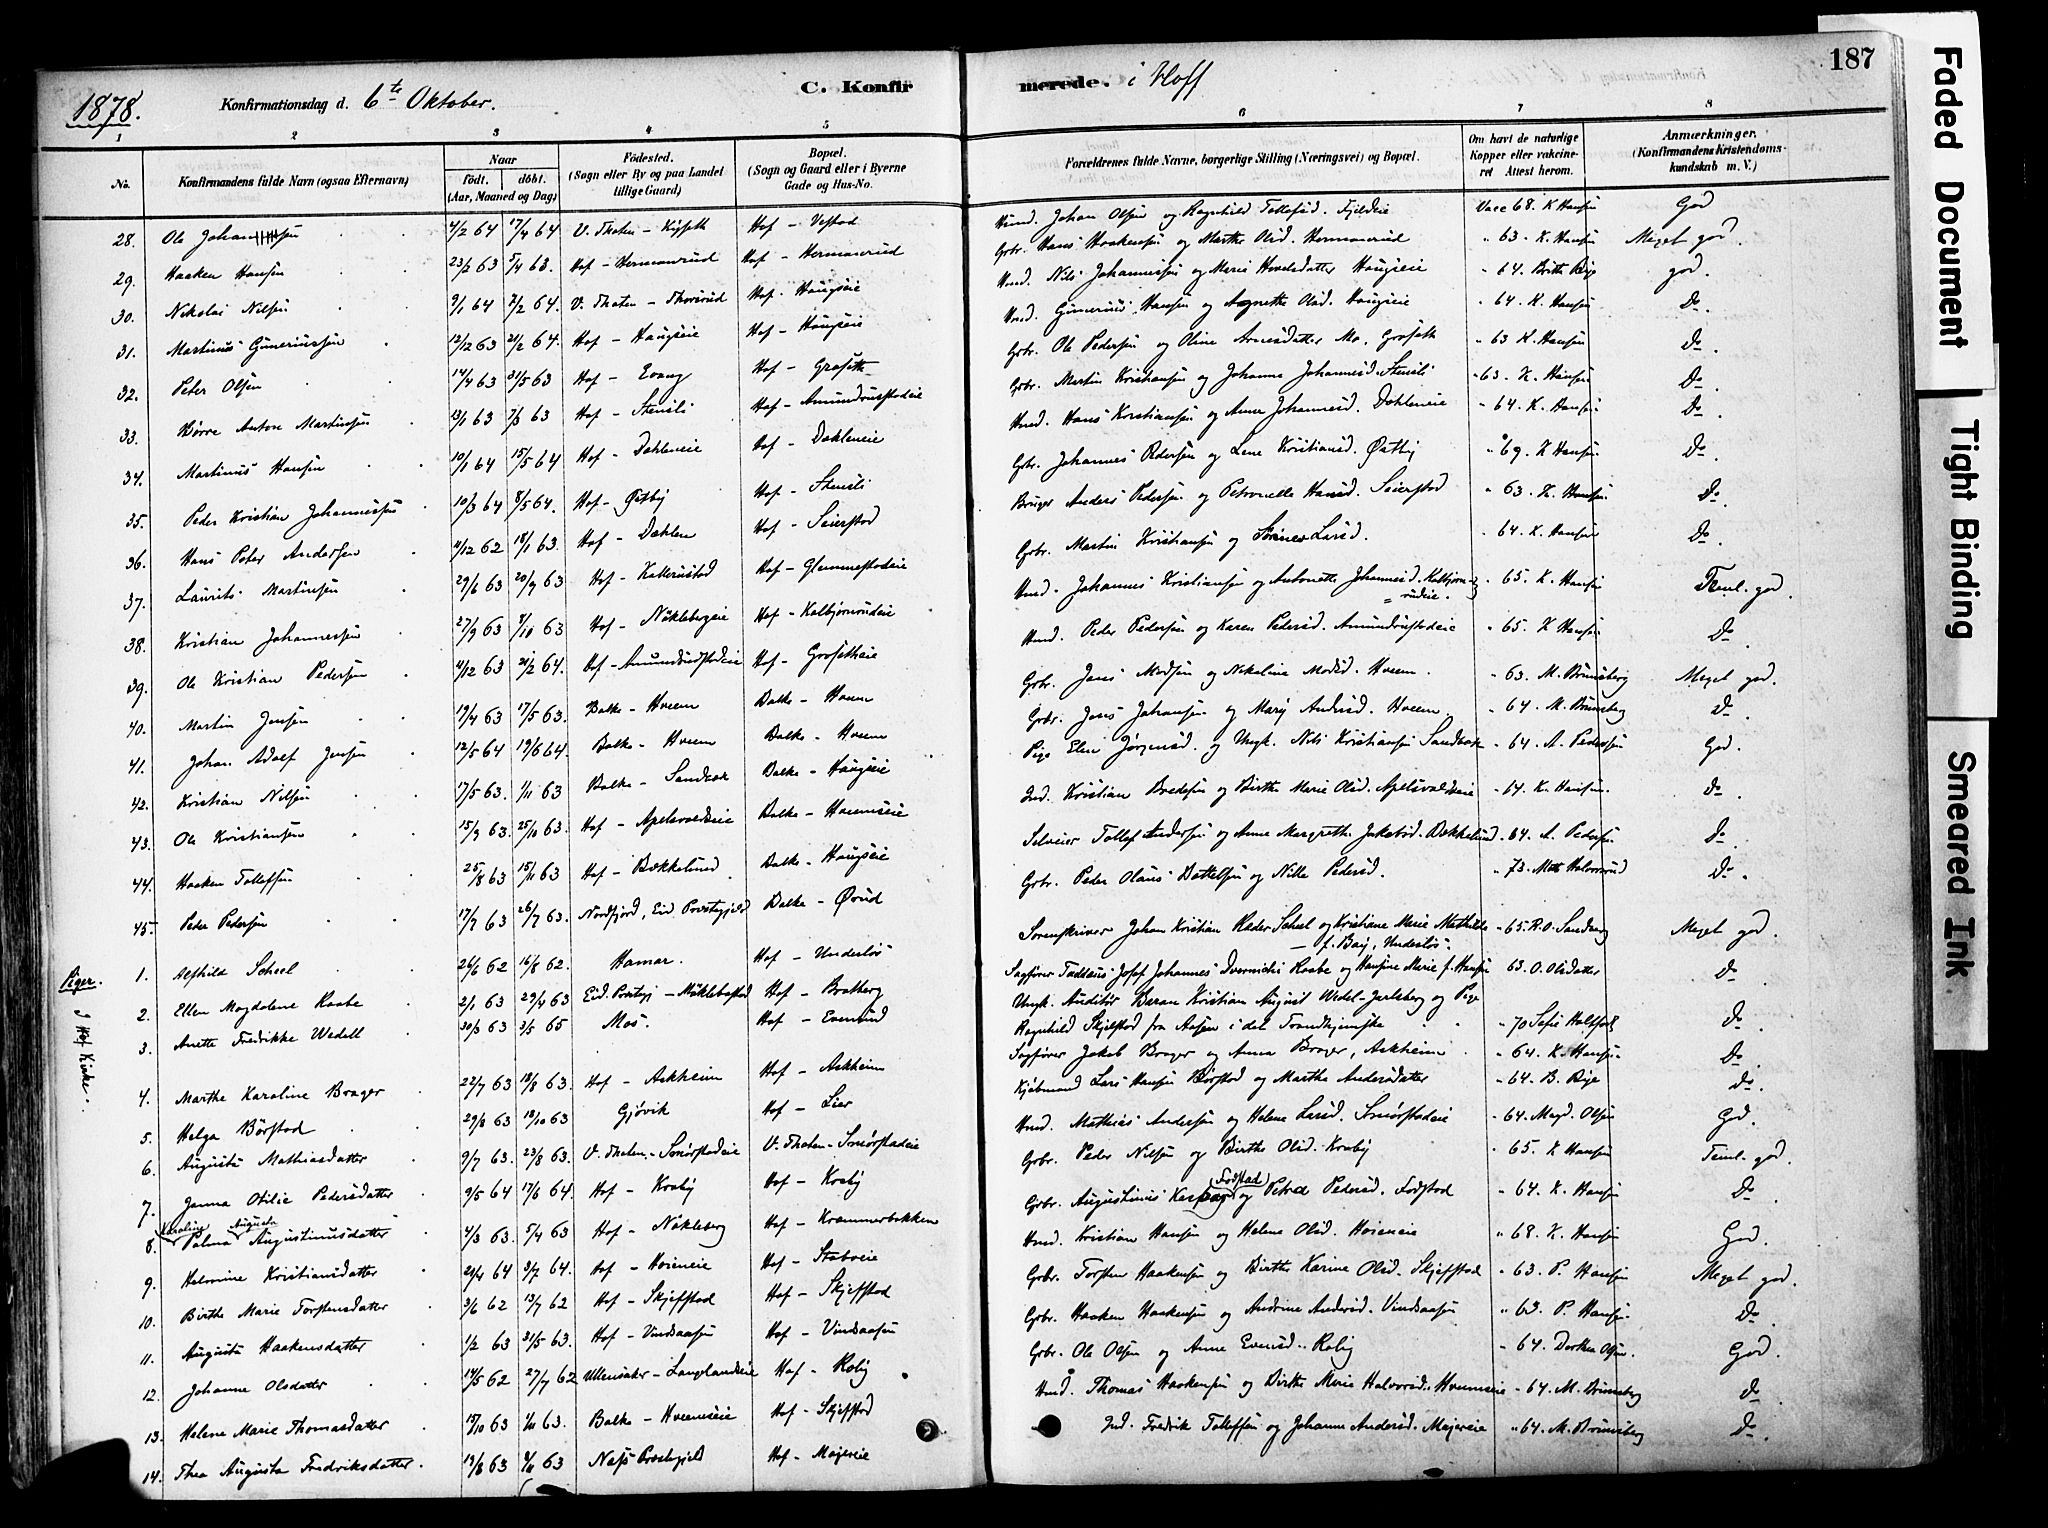 1878. Konfirmationsdag d. 6te Oktober. C. Konfirmerede. i Hoff 187
1 2 3 4 5 6 7 8
No. Konfirmandens fulde Navn (ogsaa Efternavn) Naar födt. döbt. (Aar, Maaned og Dag) Födested. (Sogn eller By og paa Landet tillige Gaard) Bopæl. (Sogn og Gaard eller i Byerne Gade og Hus-No. Forældrenes fulde Navne, borgerlige Stilling (Næringsvei) og Bopæl. Om havt de naturlige Kopper eller vakcineret Attest herom. Anmærkninger. (Konfirmandens Kristendomskundskab m. V.)
28. Ole 4/2 64 17/4 64 V. Thoten - Hof - Vestad Hmd. Johan Olsen og Ragnhild Tollefsd. Fjeldeie Vacc 68. K Hansen God
29. Haaken Hansen 23/2 63 5/4 63. Hof - Hermanrud Hof - Hermanrud Grbr. Hans Haakensen og Marthe Olsd. Hermanrud " 63. K. Hansen Meget god.
30. Nikolai Nilsen 9/1 64 7/2 64. V. Thoten - Hof - Haugseie Hmd. Nils Johannessen og Marie Haugseie " 64. Birthe Bye god.
31. Martinus Guneriussen 12/12 63 21/2 64. Hof - Haugseie Hof - Haugseie Hmd. Gunerius Hansen og Agnethe Olsd. Haugseie " 64. K. Hansen Do.
32. Peter Olsen 14/4 63 31/5 63 Hof - Evang Hof - Groseth Grbr. Ole Pedersen og Oline Arnesdatter Mo, Groseth " 63 K. Hansen Do.
33. Börre Anton Martinsen 13/1 63 7/3 63 Hof - Stensli Hof - Amundrudstadeie Grbr. Martin Kristiansen og Johanne Johannesd. Stensli " 63. K. Hansen Do.
34. Martinus Hansen 10/1 64 15/5 64 Hof - Dæhleneie Hof - Dæhleneie Hmd. Hans Kristiansen og Anne Johannesd. Dæhleneie " 64. K. Hansen Do
35. Peder Kristian Johannessen 10/3 64 8/5 64. Hof - Østby Hof - Stensli Grbr. Johannes Pedersen og Lene Kristiansd. Østby " 69. K Hansen Do
36. Hans Peter Andersen 11/12 62 18/1 63. Hof - Dæhlen Hof - Seierstad Bruger Anders Pedersen og Petronelle Hansd. Seierstad " 63. K. Hansen Do
37. Laurits Martinsen 29/6 63 20/9 63 Hof - Kallerustad Hof - Glemmestadeie Grbr. Martin Kristiansen og Larsd. " 64. K. Hansen Do.
38. Kristian Johannessen 27/9 63 8/10 63 Hof - Nöklebyeie Hof - Kolbjørnrudeie Hmd. Johannes Kristiansen og Antonette Johannesd. Kolbjørnrudeie. " 65. K. Hansen Teml. god.
39. Ole Kristian Pedersen 11/12 63 21/2 64. Hof - Amundrudstadeie Hof - Grosetheie Hmd. Peder Pedersen og Karen Pedersd. Amundrudstadeie " 65. K Hansen Do.
40. Martin Jensen 19/4 63 17/5 63. Balke - Hveem Balke - Hveem Grbr. Jens Madsen og Nikoline Madsd. Hveem. " 63. M. Brunsberg Meget god.
41. Johan Adolf Jensen 12/5 64 19/6 64. Balke - Hveem Balke - Hveem Grbr. Jens Johansen og Mari Andersd. Hveem. " 64 M. Brunsberg Do.
42. Kristian Nilsen 17/5 63. 1/11 63 Balke - Sandbak Balke - Haugseie Pige Eline Jørgensd. og Ungk. Nils Kristiansen Sandbak " 64. A. Pedersen God.
43. Ole Kristiansen 15/9 63. 25/10 63. Hof - Apelsvoldeie Balke - Hveemseie Ind. Kristian Bredesen og Birthe Marie Olsd. Apelsvoldeie " 64. K. Hansen. Do.
44. Haaken Tollefsen 25/8 63 15/11 63 Hof - Bækkelund Balke - Haugseie Selveier Tollef Andersen og Anne Margrethe Jakobsd. Bækkelund " 64. A. Pedersen Do.
45. Peder Pedersen 17/7 63 26/7 63. Nordfjord, Eid Præstegjeld Balke - Ørud Grbr. Peder Olaus Bottelsen og Nille Pedersd. " 73. Mett Halvorsrud Do.
Piger. I Hof Kirke.
1. Alfhild Scheel 26/6 62 16/8 62. Hamar. Hof - Undeslös Sorenskriver Johan Kristian Ræder Scheel og Kristiane Marie Mathilde f. Bay, Undeslös. " 65 R. O. Sandberg Meget god.
2. Ellen Magdalene Raabe 2/1 63 29/4 63 Eid. Prstgj - Nöklebystad Hof - Bratberg Sagfører Taddæus Josef Johannes Dvernicki Raabe og Hansine Marie f. Hansen 63. O. Olsdatter Do
3. Anette Fredrikke Wedell 30/3 63 3/5 65 Mos. Hof - Evenrud Ungk. Auditör Baron Kristian August Wedel-Jarlsberg og Pige Ragnhild Skjelstad fra Aasen i det Trondhjemske " 70 Sofie Do.
4. Marthe Karoline Brager 22/7 63 18/8 63. Hof - Askheim Hof - Askheim Sagfører Jakob Brager og Anna Brager, Askheim " 64. K. Hansen Do.
5. Helga Börstad 29/8 63 18/10 63 Gjövik Hof - Lier Kjöbmand Lars Hansen Börstad og Marthe Andersdatter " 64. B. Bye Do.
6. Augusta Mathiasdatter 9/7 63. 23/8 63. V. Thoten - Smörstadeie V. Thoten - Smörstadeie Hmd. Mathias Andersen og Helene Larsd. Smörstadeie " 64. Magd. Olsen God.
7. Janna Otilie Pedersdatter 9/5 64 17/6 64 Hof - Kraby Hof - Kraby Grbr. Peder Nilsen og Birthe Olsd. Kraby " 65. K Hansen Teml. god.
8. Karoline Palma Augusta Augustinusdatter 4/3 63. 5/4 63 Hof - Nökleberg Hof - Kræmmerbakken Grbr. Augustinus Fodstad og Petra Pedersd. Fodstad " 64. K. Hansen Do
9. Helmine Kristiansdatter 24/4 64 3/7 64. Hof - Hoieneie Hof - Stabveie Hmd. Kristian Hansen og Helene Olsd. Hoieneie " 68. K. Hansen God.
10. Birthe Marie Torstensdatter 3/6 62 13/7 62 Hof - Skjefstad Hof - Skjefstad Grbr. Torsten Haakensen og Birthe Karine Olsd. Skjefstad " 63. P. Hansen Meget god.
11. Augusta Haakensdatter 1/2 63 31/5 63. Hof - Vindsaasen Hof - Vindsaasen Grbr. Haaken Haakensen og Andrine Andersd. Vindsaasen " 63. P. Hansen. Do.
12. Johanne Olsdatter 14/5 62 27/7 62 Ullensaker - Langlandseie Hof - Roby Grbr. Ole Olsen og Anne Evensd. Roby " 64. Dorthea Olsen. God.
13. Helene Marie Thomasdatter 15/10 63 1/11 63. Balke - Hveemseie Hof - Skjefstad Hmd. Thomas Haakensen og Birthe Marie Halvorsd. Hveemseie " 64. M. Brunsberg Do.
14. Thea Augusta Fredriksdatter. 13/8 63 Næs Præstegjeld Hof - Majereie Ind. Fredrik Tollefsen og Johanne Andersd. Majereie " 64. M. Brunsberg Do.
Faded Document
Tight Binding
Smeared Ink.